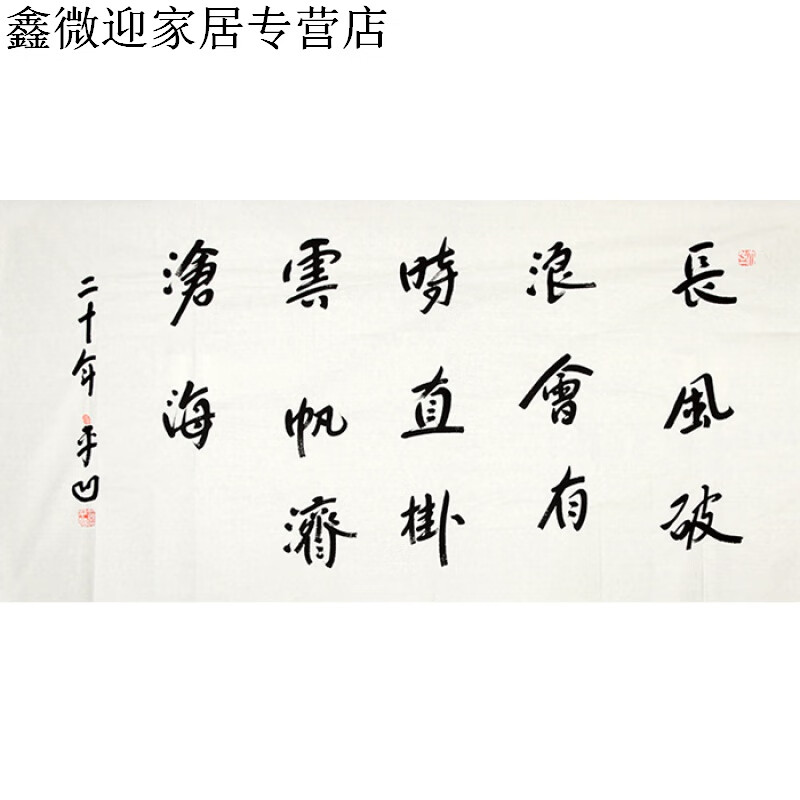 鑫微迎家居专营店
長風破
浪會有
時直掛
雲帆濟
滄海
二十年 平凹